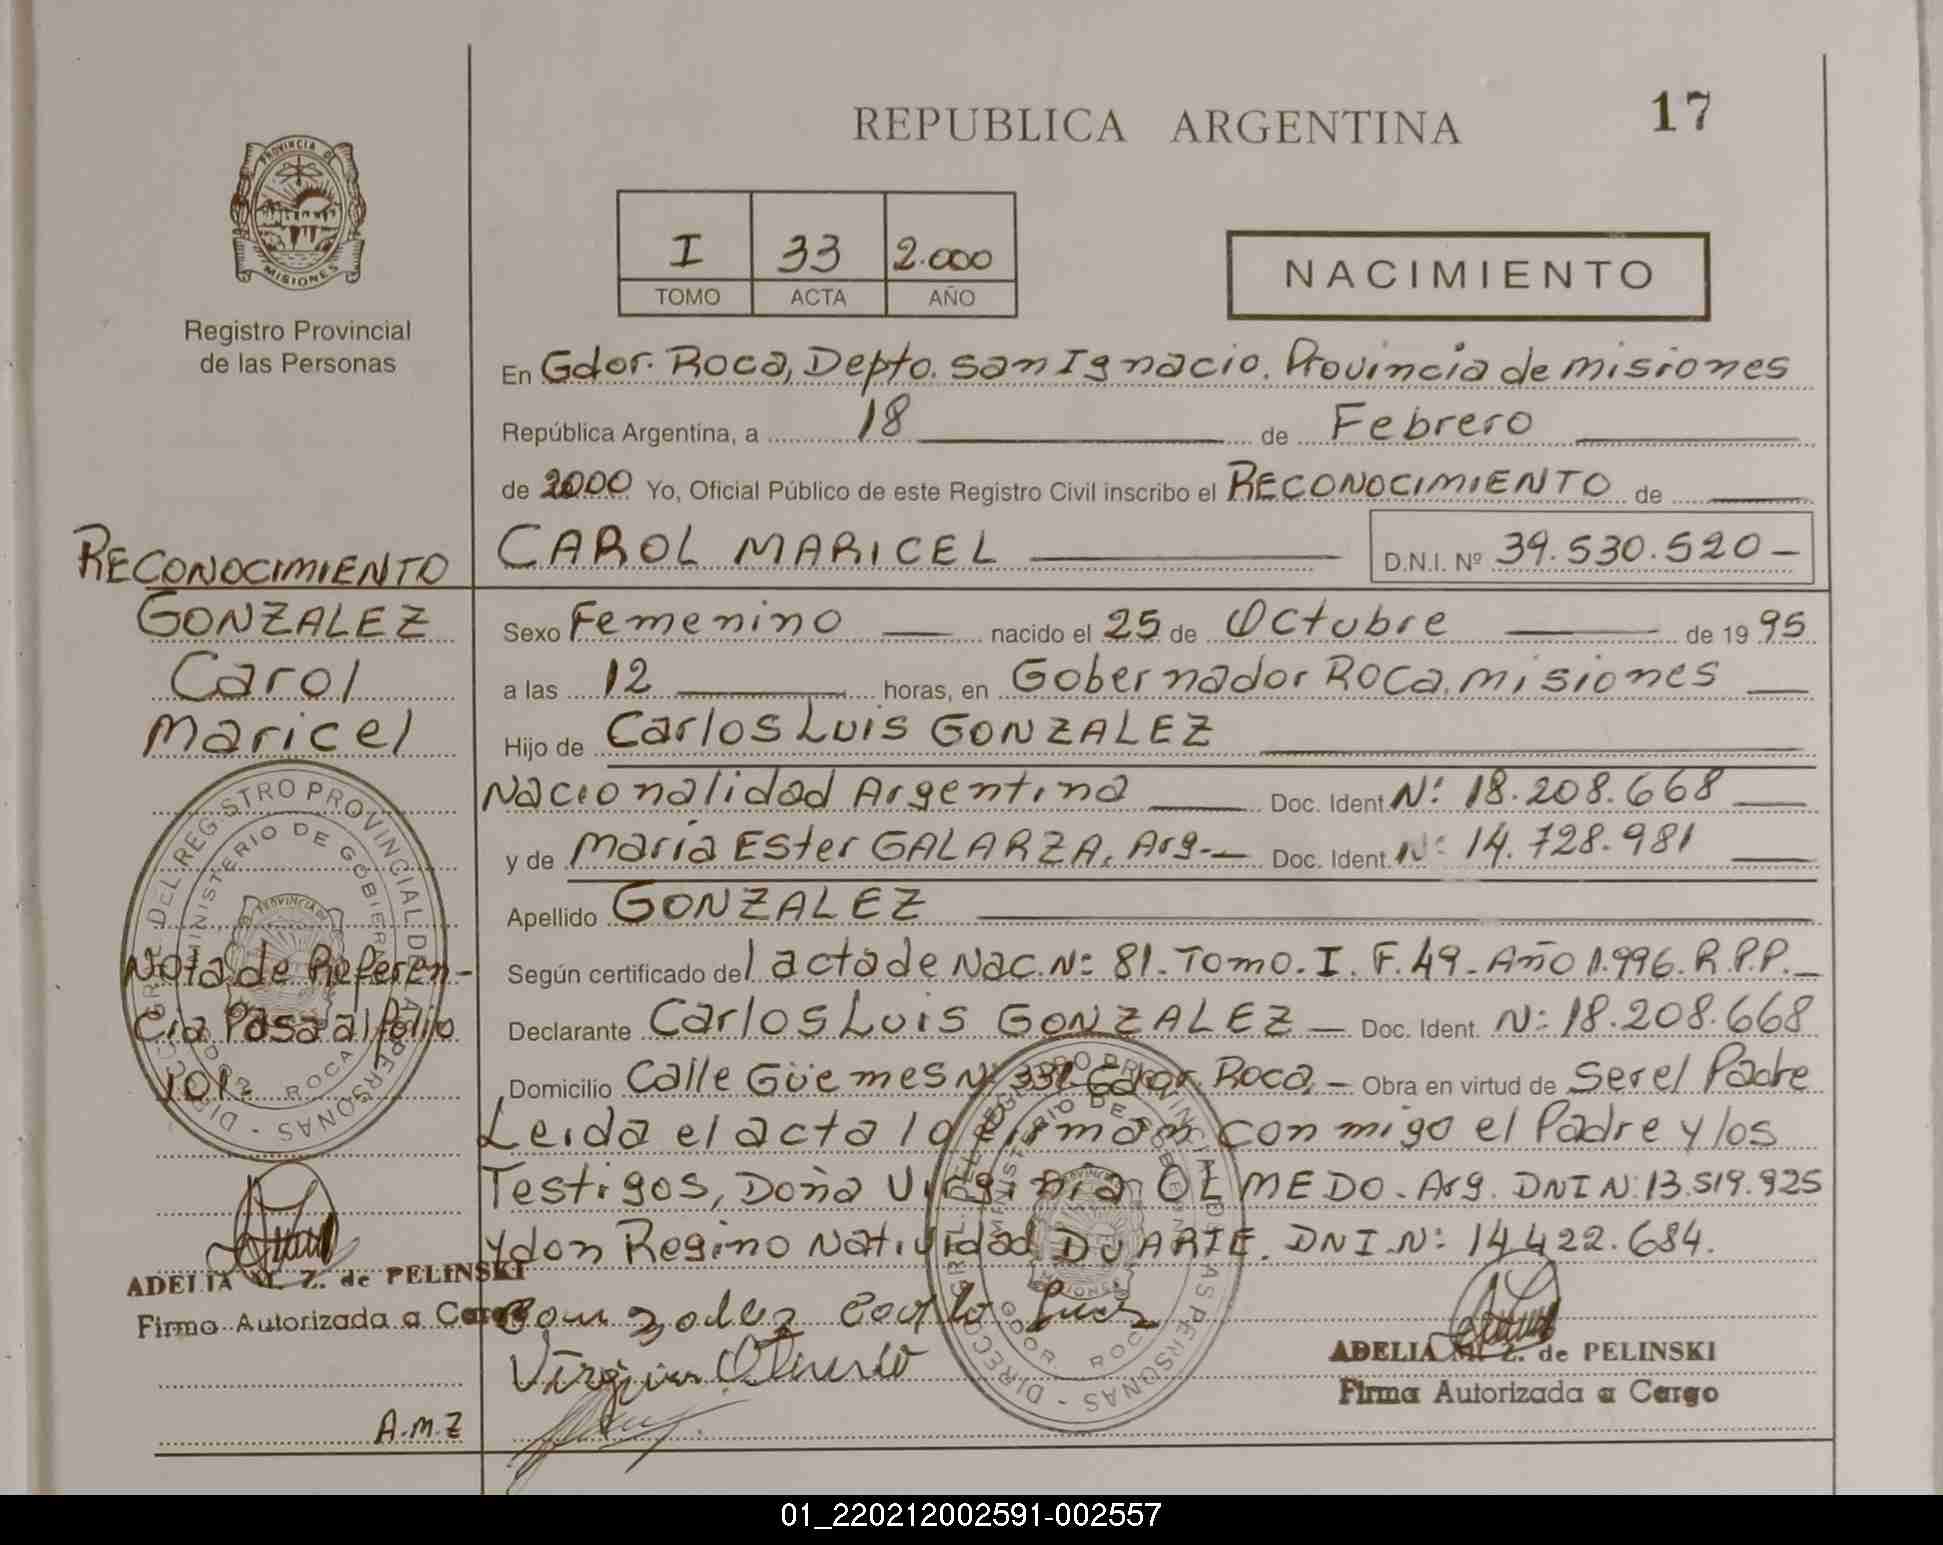 REPUBLICA ARGENTINA
17
PROVINCIA DE MISIONES
Registro Provincial
de las Personas
I 33 2.000
TOMO ACTA AÑO
NACIMIENTO
En Gdor. Roca, Depto. San Ignacio. Provincia de misiones
República Argentina, a 18 de Febrero
de 2000 Yo, Oficial Público de este Registro Civil inscribo el RECONOCIMIENTO de
CAROL MARICEL D.N.I. Nº 39.530.520
Sexo Femenino nacido el 25 de Octubre de 1995
a las 12 horas, en Gobernador Roca, misiones
Hijo de Carlos Luis GONZALEZ
Nacionalidad Argentina Doc. Ident. Nº 18.208.668
y de María Ester GALARZA. Arg.- Doc. Ident. Nº 14.728.981
Apellido GONZALEZ
Según certificado del acta de Nac. Nº 81. Tomo. I. F. 49. Año 1.996. R.P.P.
Declarante Carlos Luis GONZALEZ Doc. Ident. Nº 18.208.668
Domicilio Calle Güemes Nº 331. Gdor. Roca Obra en virtud de Ser el Padre
Leida el acta lo firman conmigo el Padre y los
Testigos, Doña Virginia OLMEDO. Arg. DNI Nº 13.519.925
y don Regino Natividad DUARTE. DNI. Nº 14.422.684.
Gonzalez Carlo Luis
Virginia Olmedo
ADELIA M. Z. de PELINSKI
Firma Autorizada a Cargo
RECONOCIMIENTO
GONZALEZ
Carol
Maricel
Nota de Referen-
cia Pasa al Folio
101.
ADELIA M. Z. de PELINSKI
Firma Autorizada a Cargo
A.M.Z
DIRECC. GRL. DEL REGISTRO PROVINCIAL DE LAS PERSONAS
MINISTERIO DE GOBIERNO
GDOR. ROCA
01_220212002591-002557